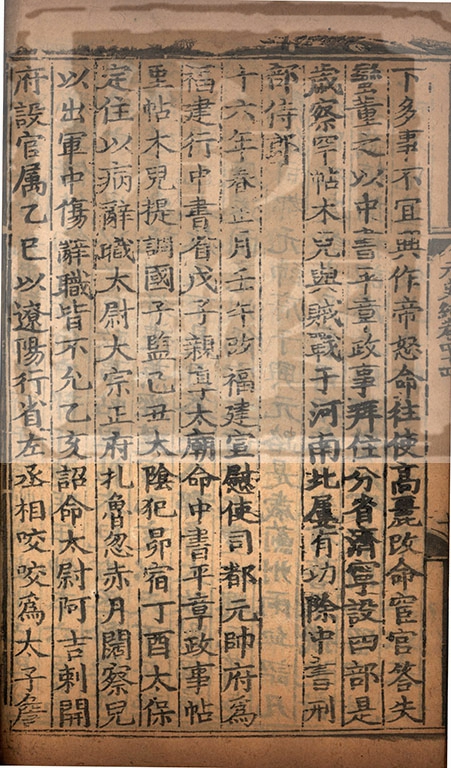 下多事不冝興作帝怒命往使高麗改命宦官答失
蠻董之以中書平章政事拜住分省濟寧設四部是
歳察罕帖木兒與賊戰于河南北屢有功除中書刑
部侍郎
十六年春正月壬午改福建宣慰使司都元帥府爲
福建行中書省戊子親享太廟命中書平章政事帖
里帖木兒提調國子監己丑太陰犯昴宿丁酉太保
定住以病辭職太尉大宗正府扎魯忽赤月闊察兒
以出軍中傷辭職皆不允乙亥詔命太尉阿吉剌開
府設官属乙巳以遼陽行省左丞相咬咬爲太子詹